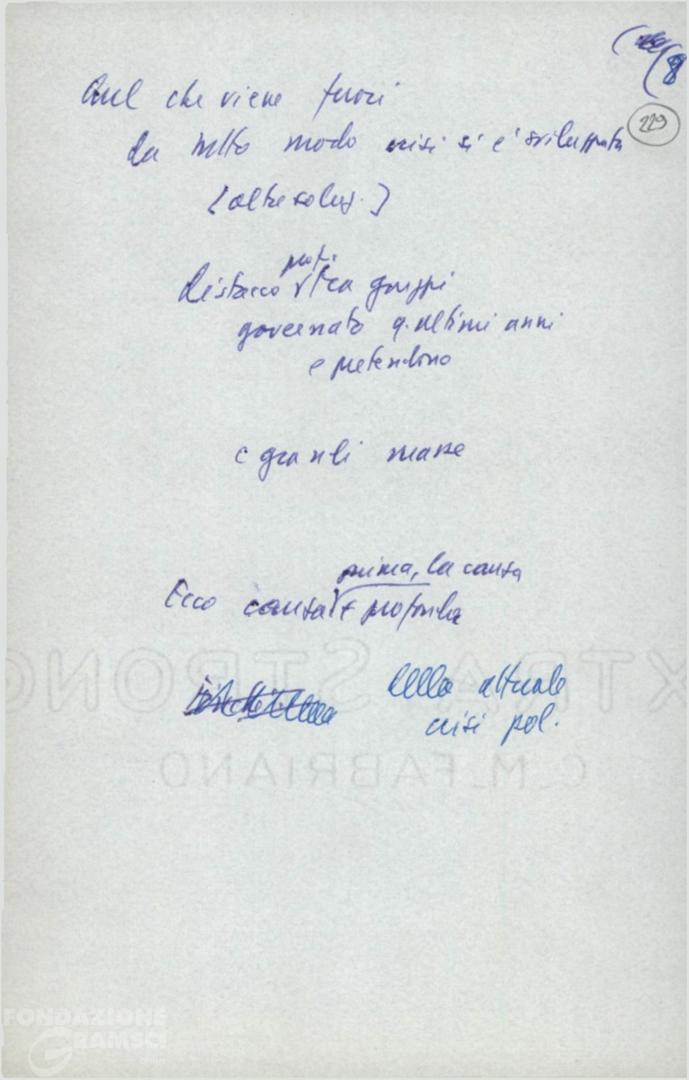 (8
229
Quel che viene fuori
da tutto modo crisi si è sviluppata
[altre soluz.]
prof.
distacco √ tra gruppi
governato q. ultimi anni
e pretendono
e grandi masse
prima, la causa
Ecco causa √ + profonda
della attuale
crisi pol.
EXTRA STRONG
C.M. FABRIANO
FONDAZIONE
GRAMSCI